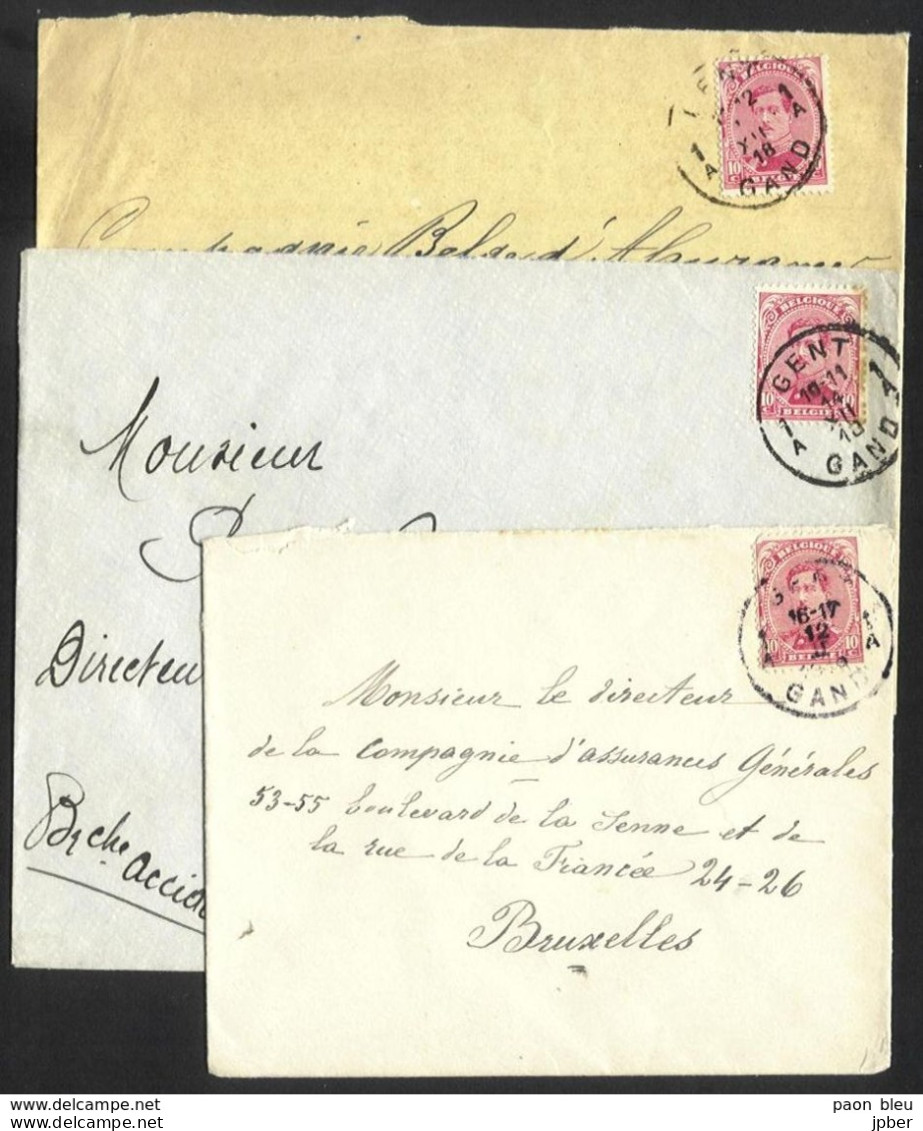 BELGIQUE
10 C
BELGIË
12
XII
18
1 A
1 A
GAND
Compagnie Belge d'Assurances
BELGIQUE
10 10
BELGIË
GENT
10-11
14
XII
1 A
1 A
GAND
Monsieur
Directeu
Bche accid
BELGIQUE
10 10
BELGIË
16-17
12
A
A
GAND
Monsieur le directeur
de la Compagnie d'assurances Générales
53-55 boulevard de la Senne et de
la rue de la Fiancée 24-26
Bruxelles
paon bleu
jpber